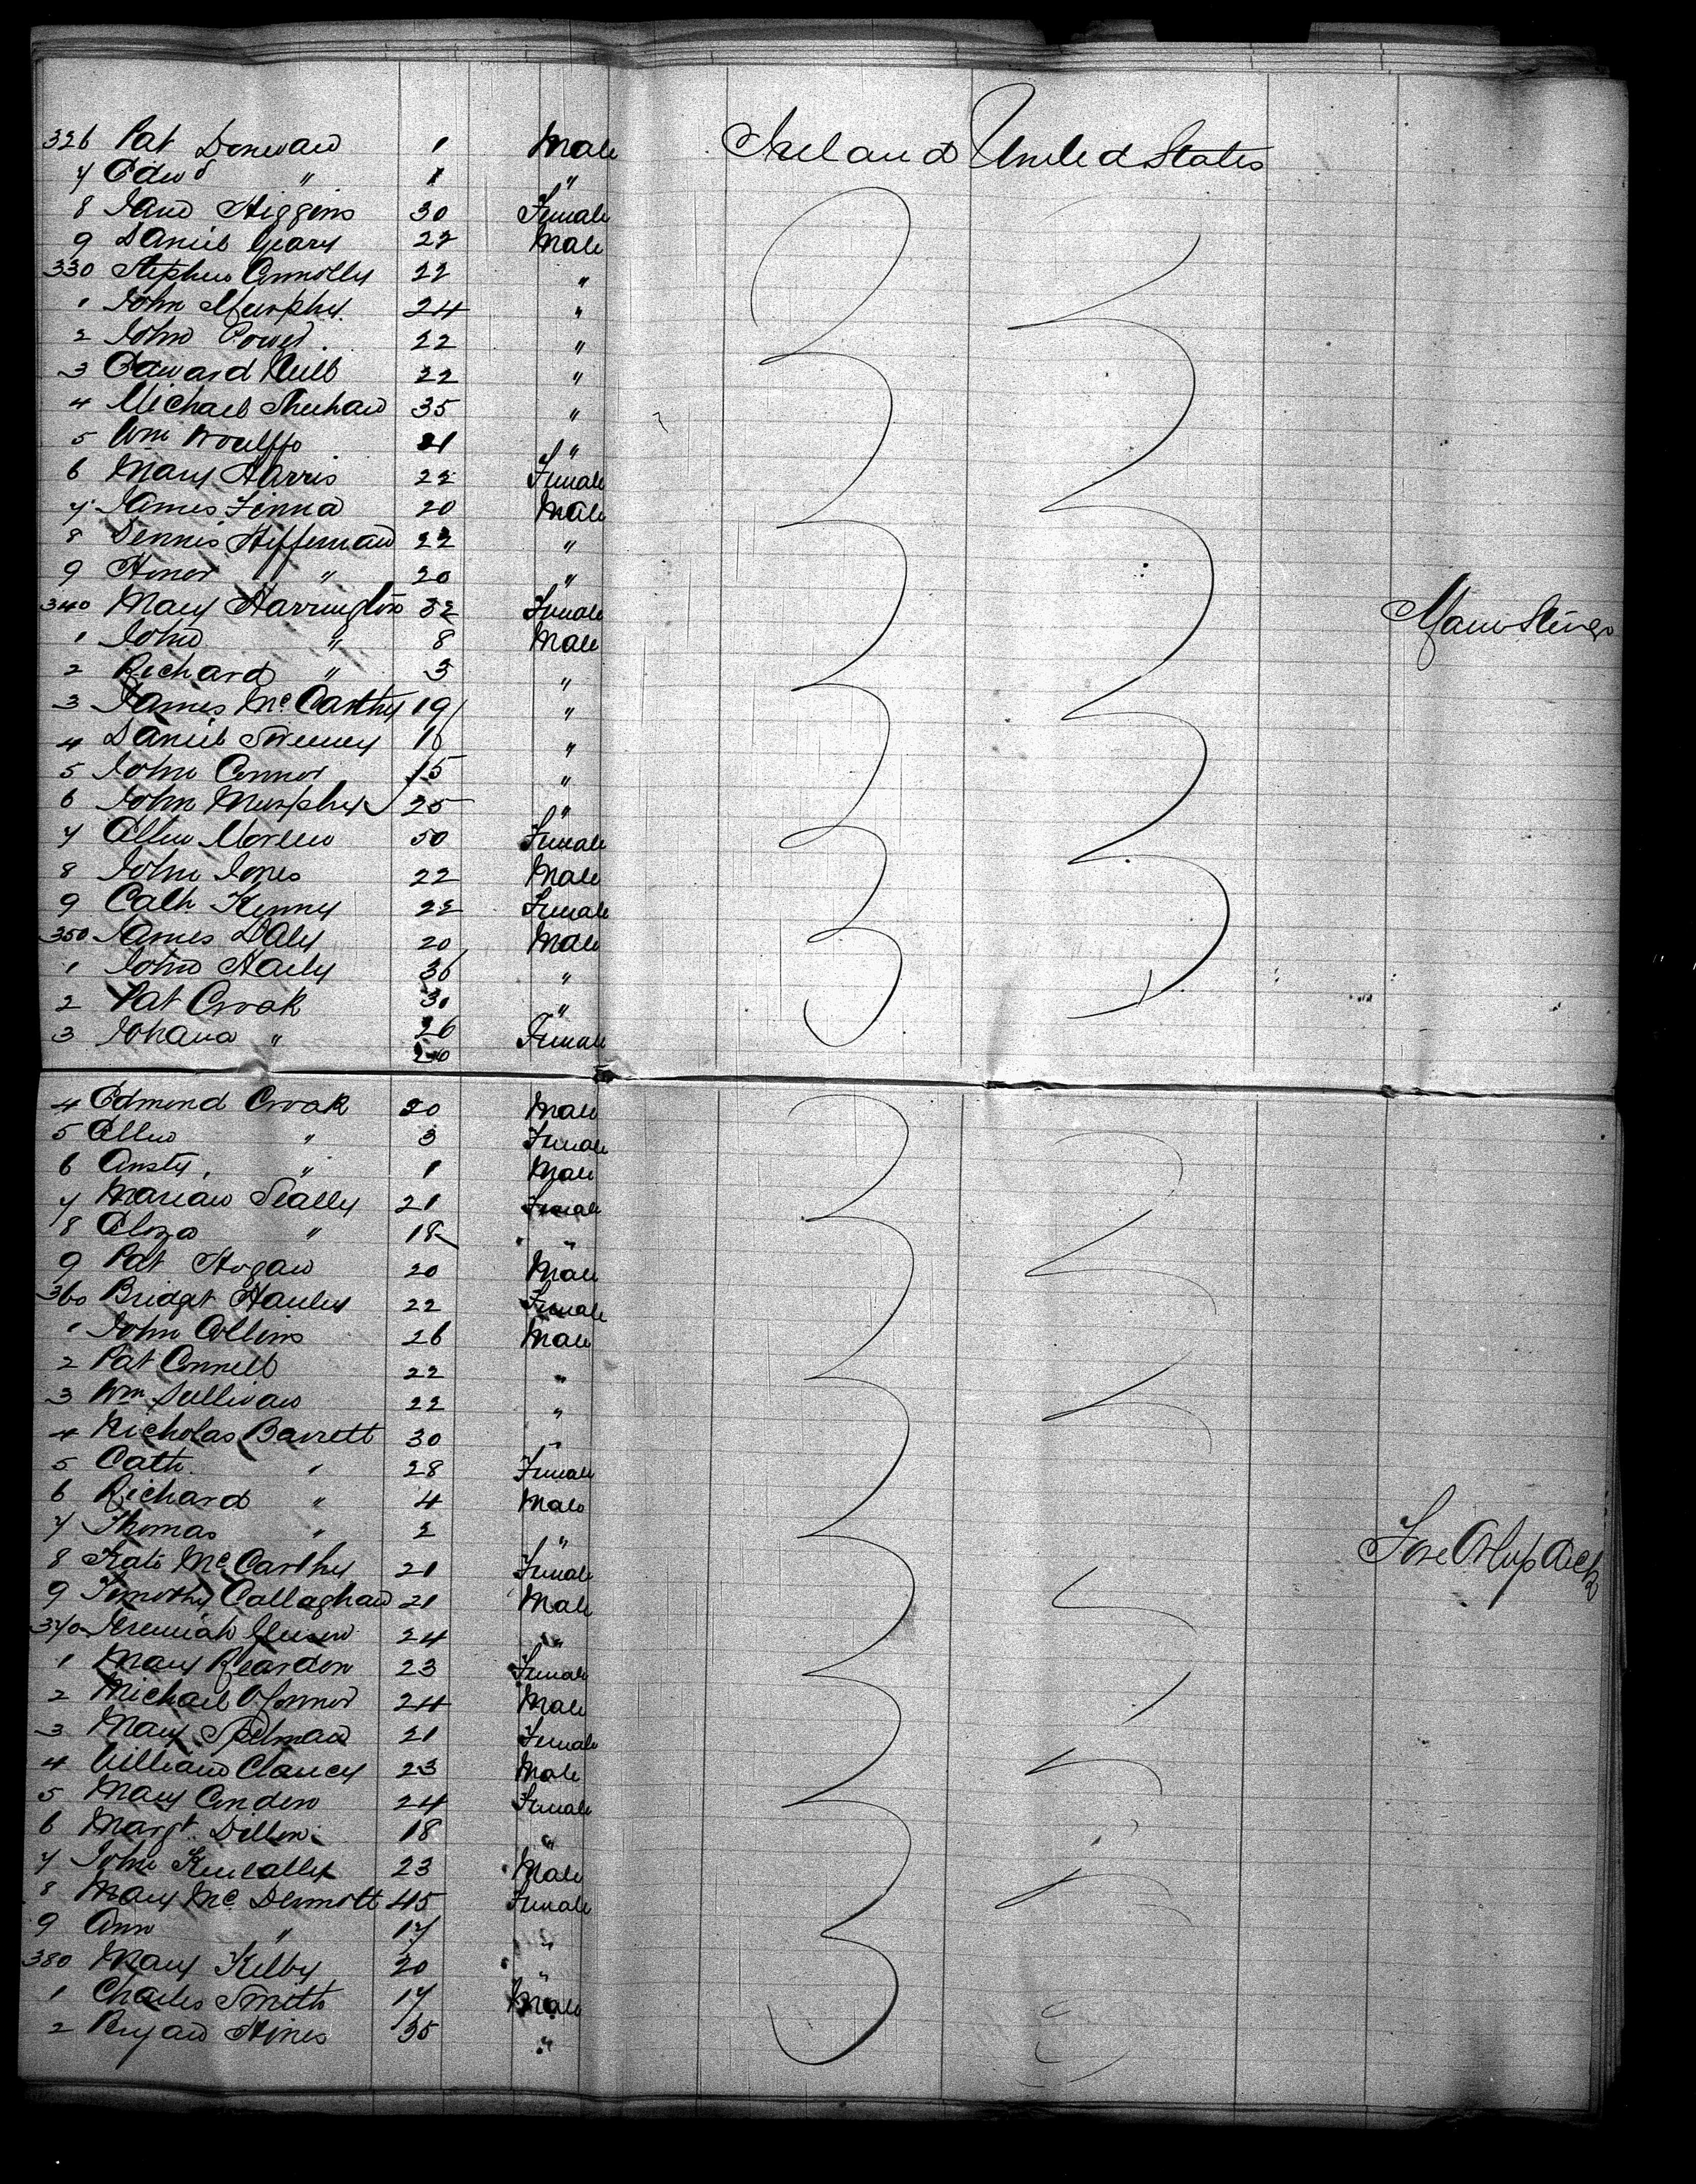 326 Pat Donovan 1 Male Ireland United States
7 Edwd " 1 "
8 Jane Higgins 30 Female
9 Daniel Geary 22 Male
330 Stephen Connolly 22 "
1 John Murphy 24 "
2 John Power 22 "
3 Edward Neill 22 "
4 Michael Sheehan 35 "
5 Wm Woulffe 21 "
6 Mary Harris 22 Female
7 James Finna 20 Male
8 Dennis Heffernan 22 "
9 Honor " 20 "
340 Mary Harrington 32 Female
1 John " 8 Male
2 Richard " 3 "
3 James McCarthy 19 "
4 Daniel Sweeney 18 "
5 John Connor 15 "
6 John Murphy 25 "
7 Ellen 50 Female
8 John Jones 22 Male
9 Cath. Kenny 22 Female
350 James Daly 20 Male
1 John Haely 36 "
2 Pat Croak 30 "
3 Johana " 26 Female
4 Edmond Croak 20 Male
5 Ellen " 3 Female
6 Ansty " 1 Male
7 Marian Scally 21 Female
8 Eliza " 18 "
9 Pat Hogan 20 Male
360 Bridget 22 Female
1 John Collins 26 Male
2 Pat Connell 22 "
3 Wm Sullivan 22 "
4 Nicholas Barrett 30 "
5 Cath. " 28 Female
6 Richard " 4 Male
7 Thomas " 2 "
8 Kate McCarthy 21 Female
9 Timothy Callaghan 21 Male
370 Jeremiah 24 "
1 Mary Reardon 23 Female
2 Michael O'Connor 24 Male
3 Mary Spelman 21 Female
4 William Clancy 23 Male
5 Mary Condon 24 Female
6 Margt. Dillon 18 "
7 John Kincally 23 Male
8 Mary McDermott 45 Female
9 Ann " 17 "
380 Mary Kelby 20 "
1 Charles Smith 17 Male
2 Bryan Hines 35 "
Fore Orlop deck